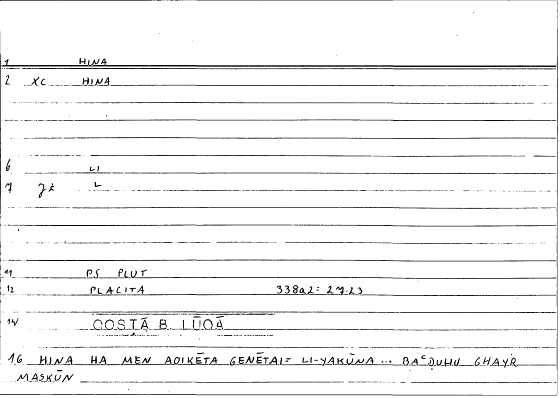 1 HINA
2 XC HINA
6 LI
7 Jk L
11 PS PLUT
12 PLACITA 338a2= 27.23
14 QOSṬĀ B. LŪQĀ
16 HINA HA MEN AOIKĒTA GENĒTAI= LI-YAKŪNA ... BAʿḌUHU GHAYR
MASKŪN